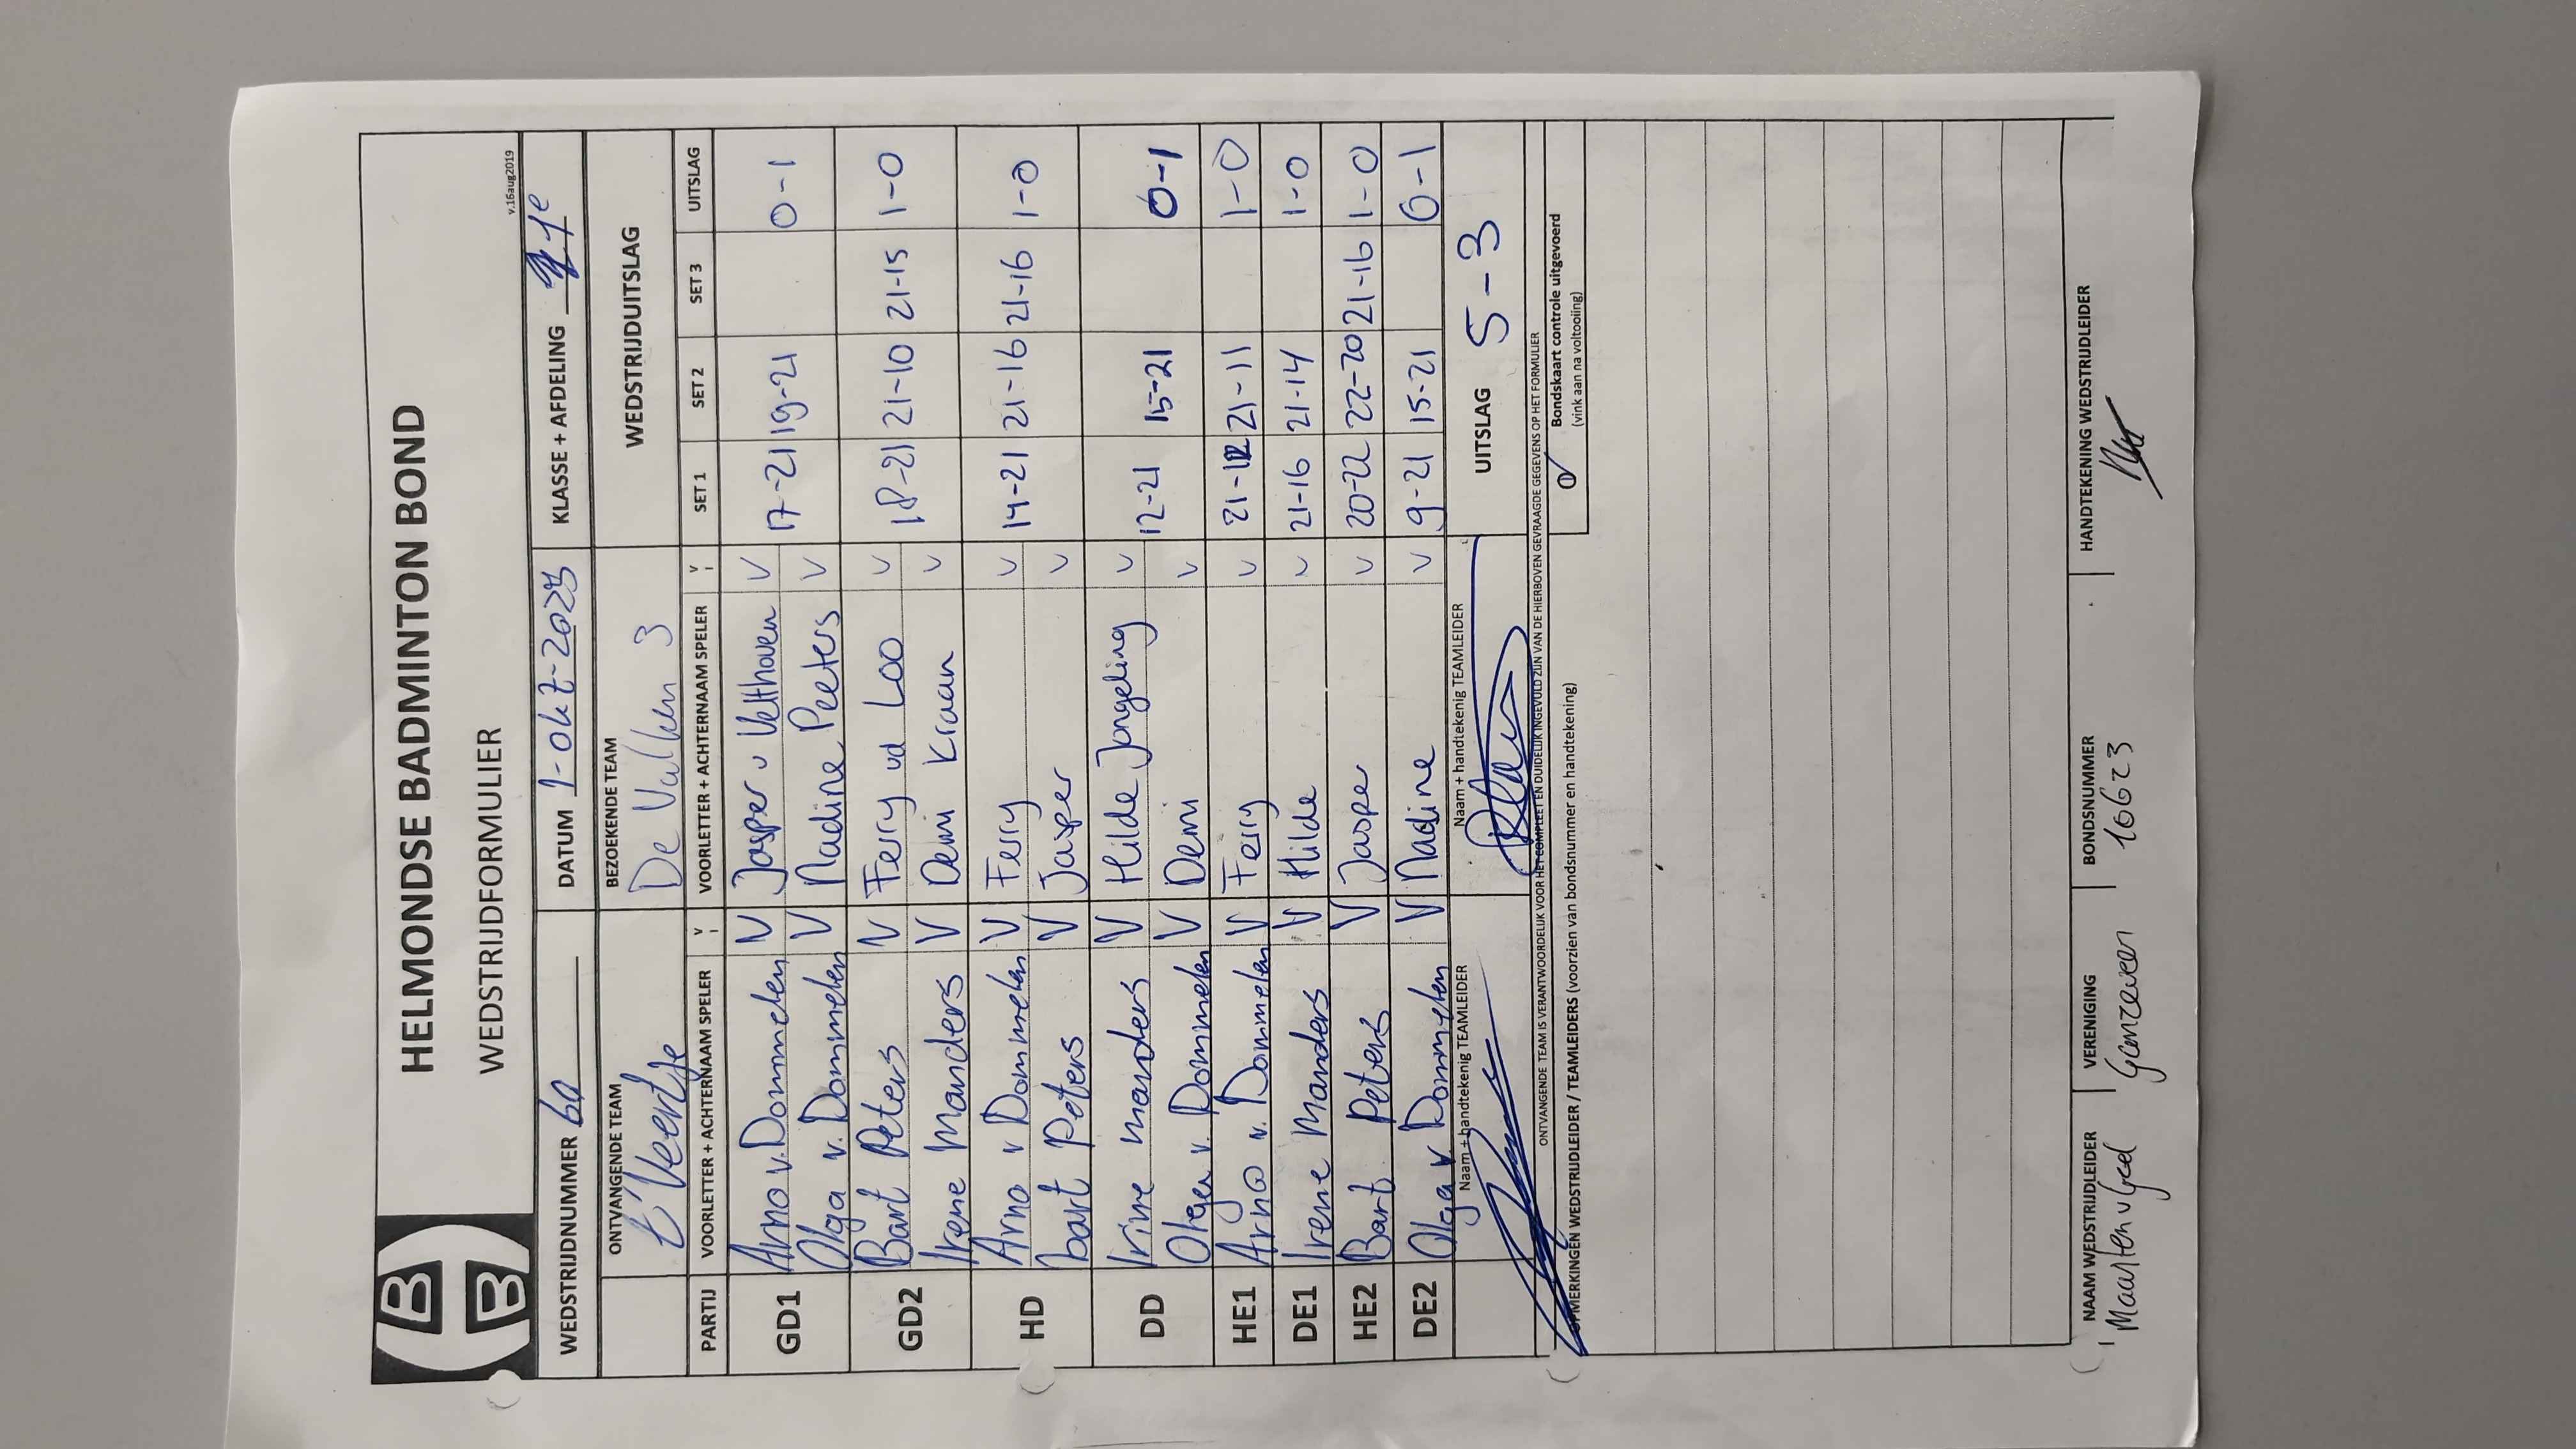 HELMONDSE BADMINTON BOND
WEDSTRIJDFORMULIER
v.16aug2019
WEDSTRIJDNUMMER 60 DATUM 1-okt-2025 KLASSE + AFDELING 1e
ONTVANGENDE TEAM BEZOEKENDE TEAM WEDSTRIJDUITSLAG
t'Veertje De Valken 3
PARTIJ VOORLETTER + ACHTERNAAM SPELER V VOORLETTER + ACHTERNAAM SPELER V SET 1 SET 2 SET 3 UITSLAG
GD1 Arno v. Dommelen V Jasper v Velthoven V 17-21 19-21 0-1
Olga v. Dommelen V Nadine Peeters V
GD2 Bart Peters V Ferry vd Loo V 18-21 21-10 21-15 1-0
Irene Manders V Demi Kraan V
HD Arno v Dommelen V Ferry V 14-21 21-16 21-16 1-0
bart Peters V Jasper V
DD Irine manders V Hilde Jongeling V 12-21 15-21 0-1
Olga v. Dommelen V Demi V
HE1 Arno v. Dommelen V Ferry V 21-12 21-11 1-0
DE1 Irene Manders V Hilde V 21-16 21-14 1-0
HE2 Bart Peters V Jasper V 20-22 22-20 21-16 1-0
DE2 Olga v Dommelen V Nadine V 9-21 15-21 0-1
Naam + handtekenig TEAMLEIDER Naam + handtekenig TEAMLEIDER UITSLAG 5-3
ONTVANGENDE TEAM IS VERANTWOORDELIJK VOOR HET COMPLEET EN DUIDELIJK INGEVULD ZIJN VAN DE HIERBOVEN GEVRAAGDE GEGEVENS OP HET FORMULIER
OPMERKINGEN WEDSTRIJDLEIDER / TEAMLEIDERS (voorzien van bondsnummer en handtekening)
Bondskaart controle uitgevoerd
(vink aan na voltooiing)
NAAM WEDSTRIJDLEIDER VERENIGING BONDSNUMMER HANDTEKENING WEDSTRIJDLEIDER
Maarten v Geel 10623